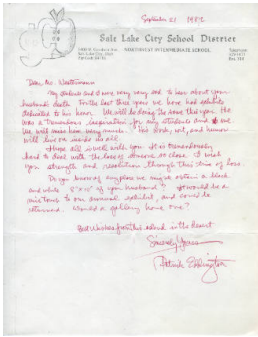 September 21 1982
Salt Lake City School District
NORTHWEST INTERMEDIATE SCHOOL
Dear Ms. Westermann
My students and I were very very sad to hear about your
husband's death. For the last three years we have had exhibits
dedicated to his honor. We will be doing the same this year. He
was a tremendous inspiration for my students and me.
We will miss him very much. His work, art, and humor
will live on inside us all.
I hope all is well with you. It is tremendously
hard to deal with the loss of someone so close. I wish
you strength and resolution through this time of loss.
Do you know of any place we might obtain a black
and white 8" x 10" of your husband? It would be a
nice to our annual exhibit, and could be
returned. Would a gallery have one?
Best wishes from this school in the Heart
Sincerely Yours
Patrick Eddington